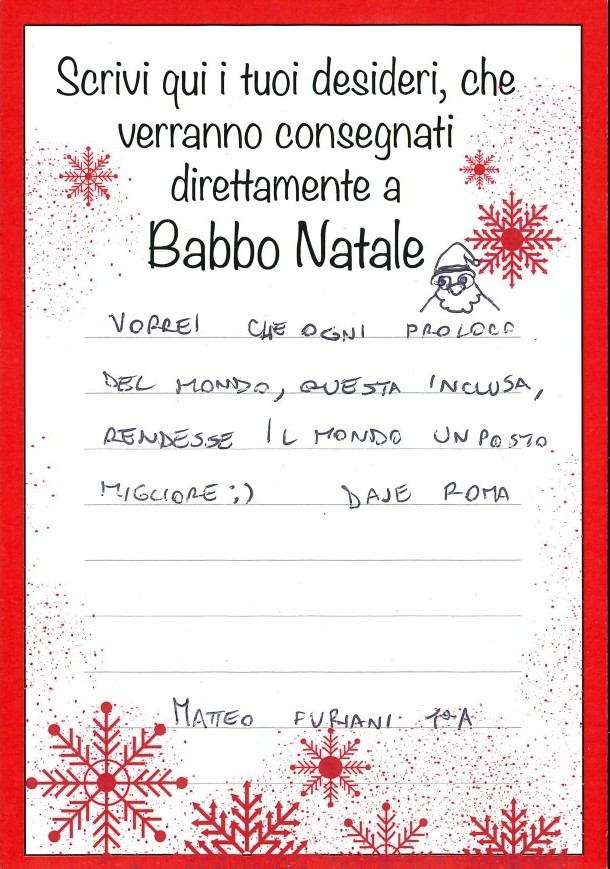 Scrivi qui i tuoi desideri, che
verranno consegnati
direttamente a
Babbo Natale
VORREI CHE OGNI PROLOCO
DEL MONDO, QUESTA INCLUSA,
RENDESSE IL MONDO UN POSTO
MIGLIORE ;) DAJE ROMA
MATTEO FURIANI 1°A